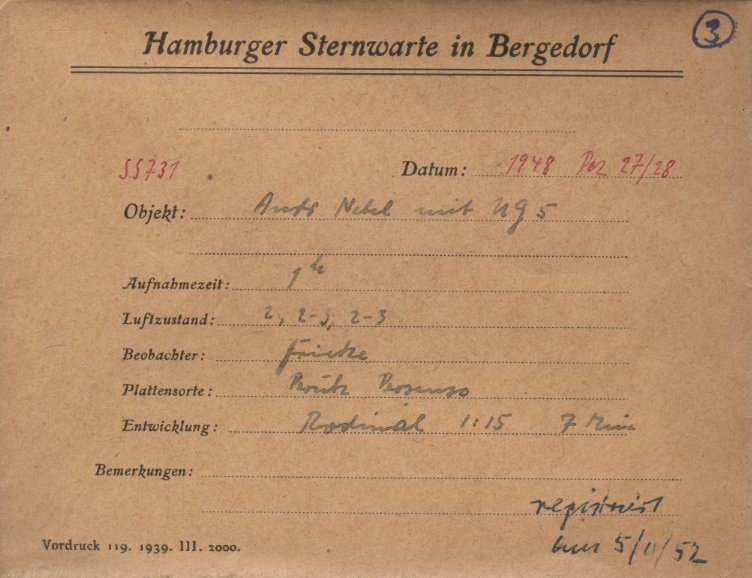 3
Hamburger Sternwarte in Bergedorf
SS731 Datum: 1948 Dez 27/28
Objekt: Andr Nebel mit UG 5
Aufnahmezeit: 1h
Luftzustand: 2, 2-3, 2-3
Beobachter: Fricke
Plattensorte: Perutz
Entwicklung: Rodinal 1:15 7 Min
Bemerkungen:
registriert
am 5/11/52
Vordruck 119. 1939. III. 2000.